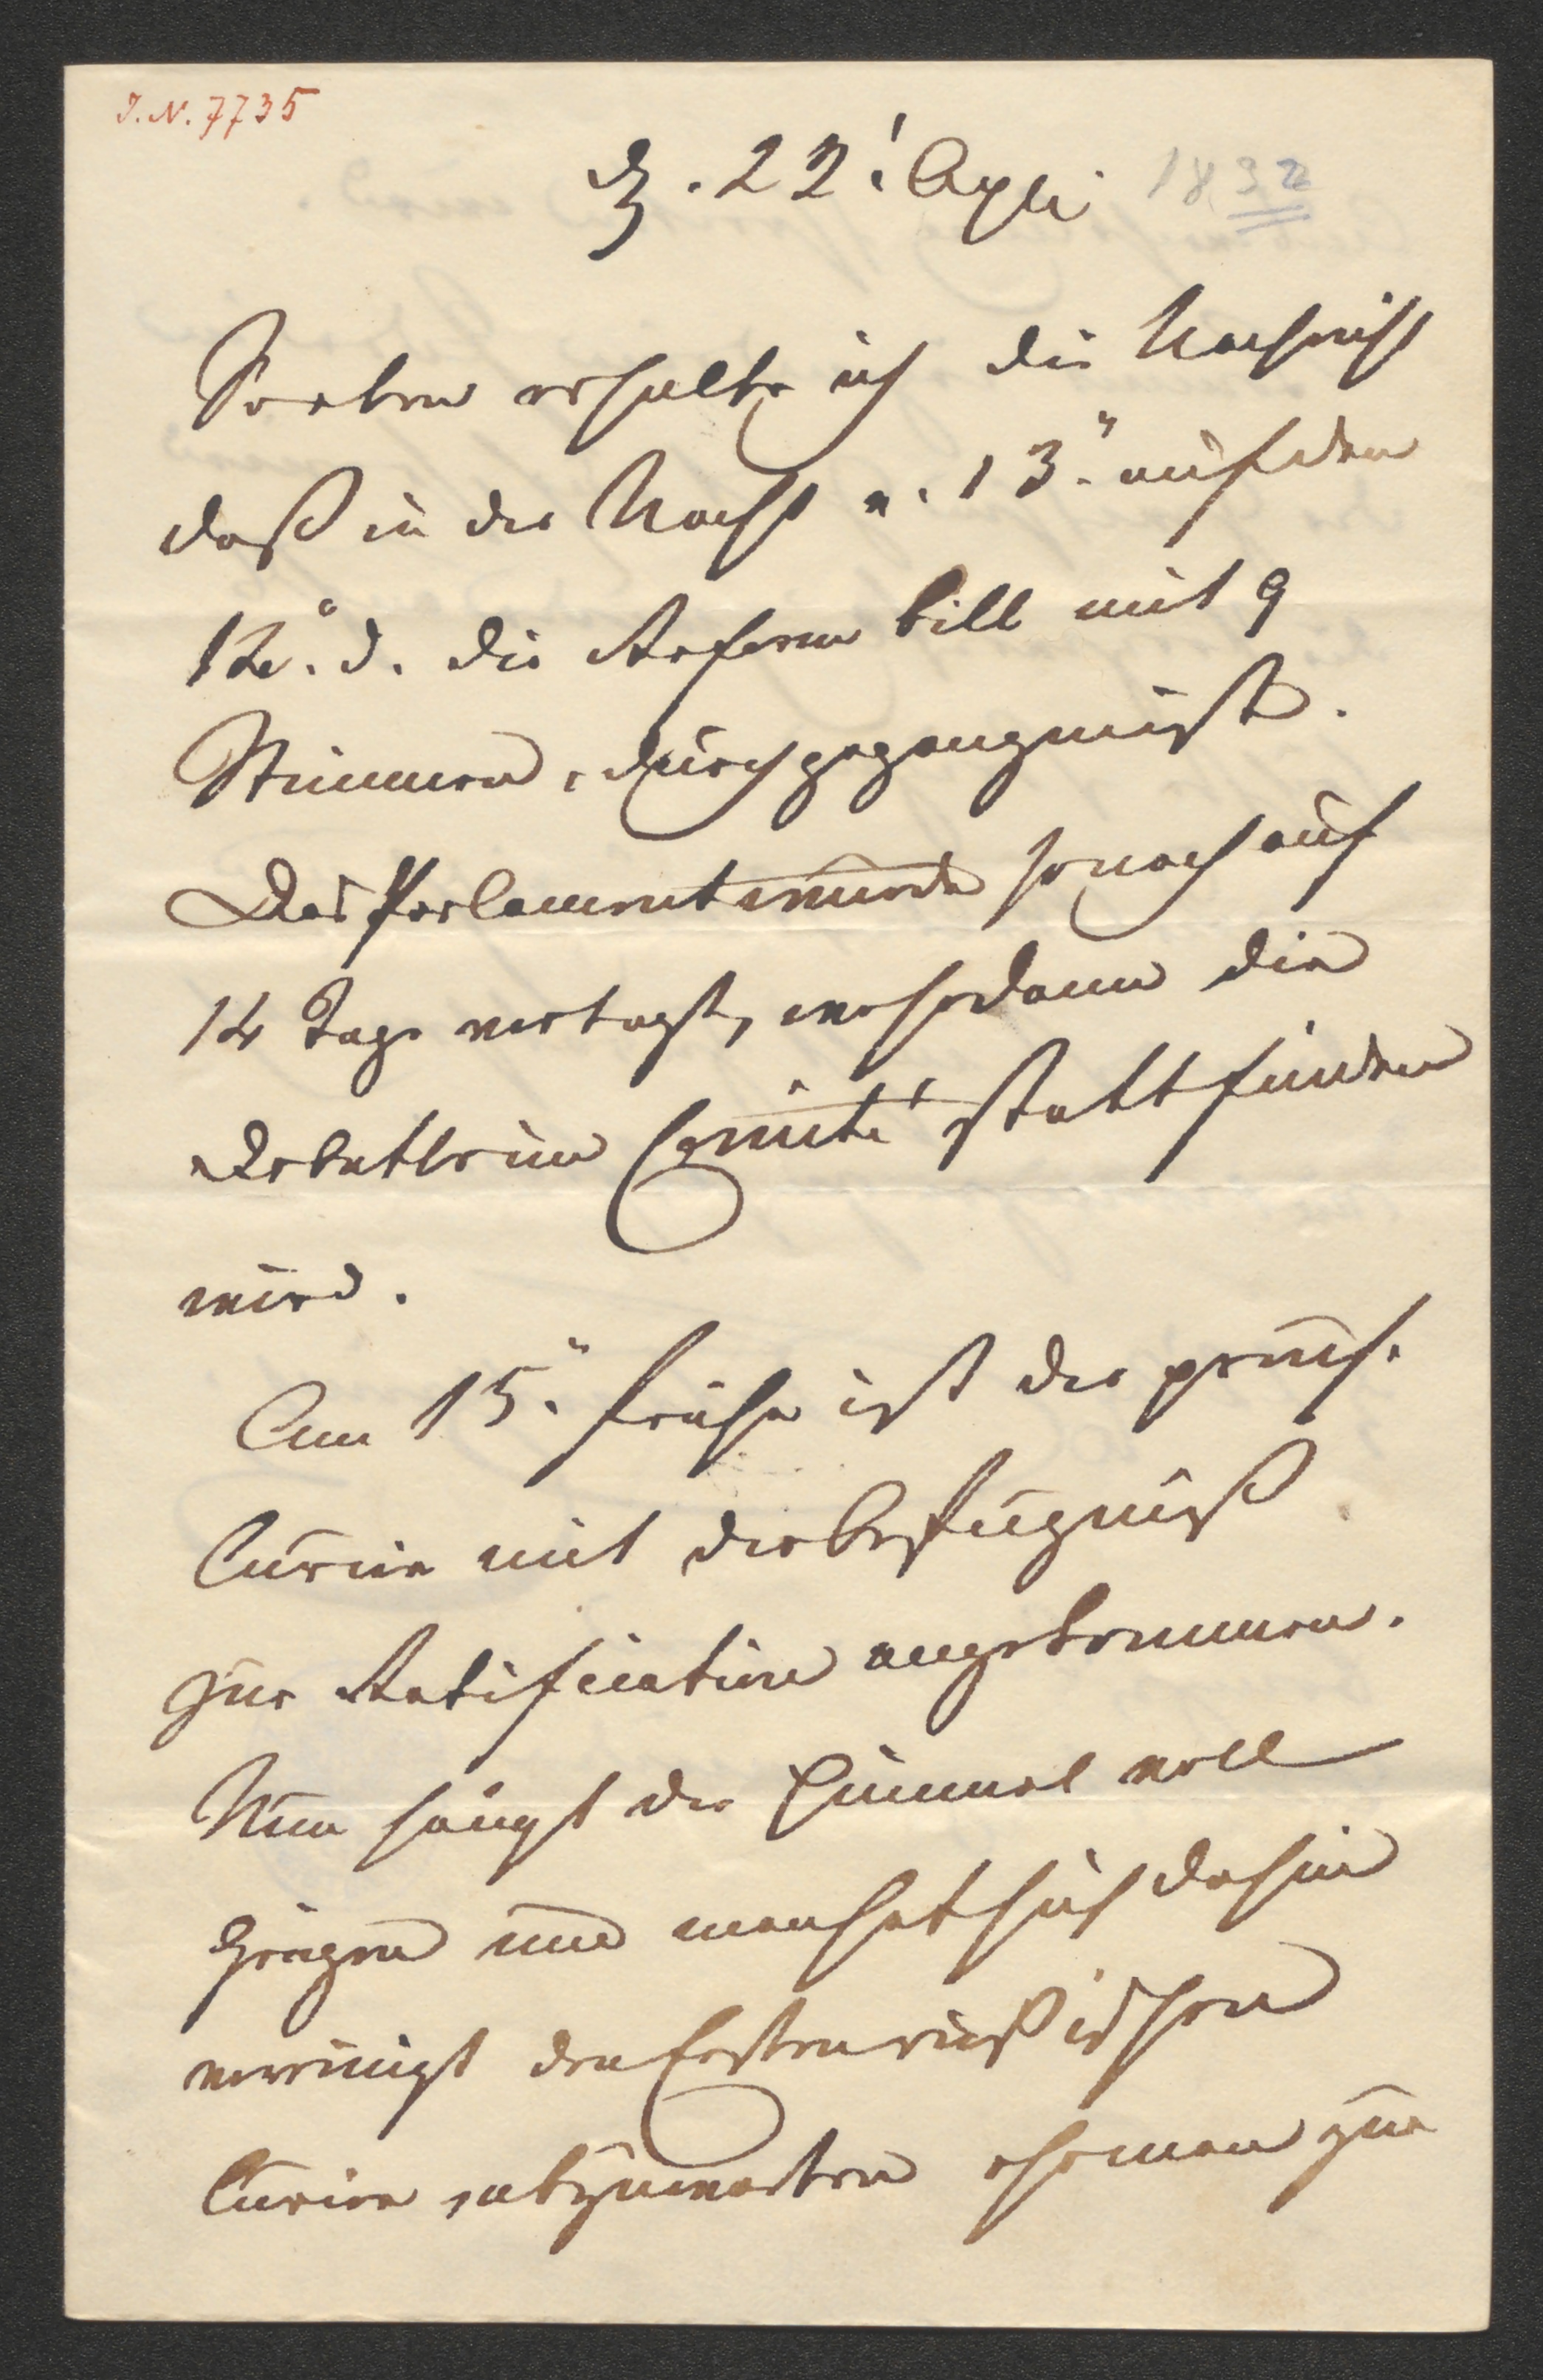 I. N. 7735
d. 22t April 1832
Soeben erhalte ich die Nachricht
daß in der Nacht v. 13t auf den
14t d. die Reform bill mit 9
Stimmen, durchgegangen ist.
Das Parlament wurde sonach auf
14 Tage vertagt, wo sodann die
Debatte im Comité statt finden
wird.
Am 15t frühe ist der preuß.
Curier mit der Befugniß
zur Ratification angekommen.
Nun hängt der Himmel voll
Geigen und man hat sich dahin
vereinigt den Ersten russischen
Curier abzuwarten ehe man zur